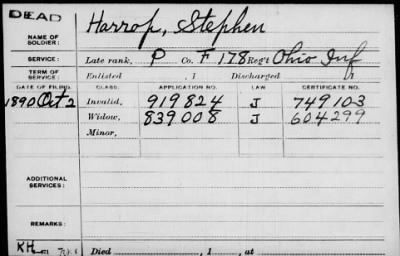 DEAD
NAME OF SOLDIER: Harrop, Stephen
SERVICE: Late rank, P Co. F 178 Reg't Ohio Inf
TERM OF SERVICE: Enlisted , 1 Discharged
DATE OF FILING. CLASS. APPLICATION NO. LAW CERTIFICATE NO.
1890 Oct 2 Invalid, 919824 J 749103
Widow, 839008 J 604299
Minor,
ADDITIONAL SERVICES:
REMARKS:
KH
Died , 1 , at